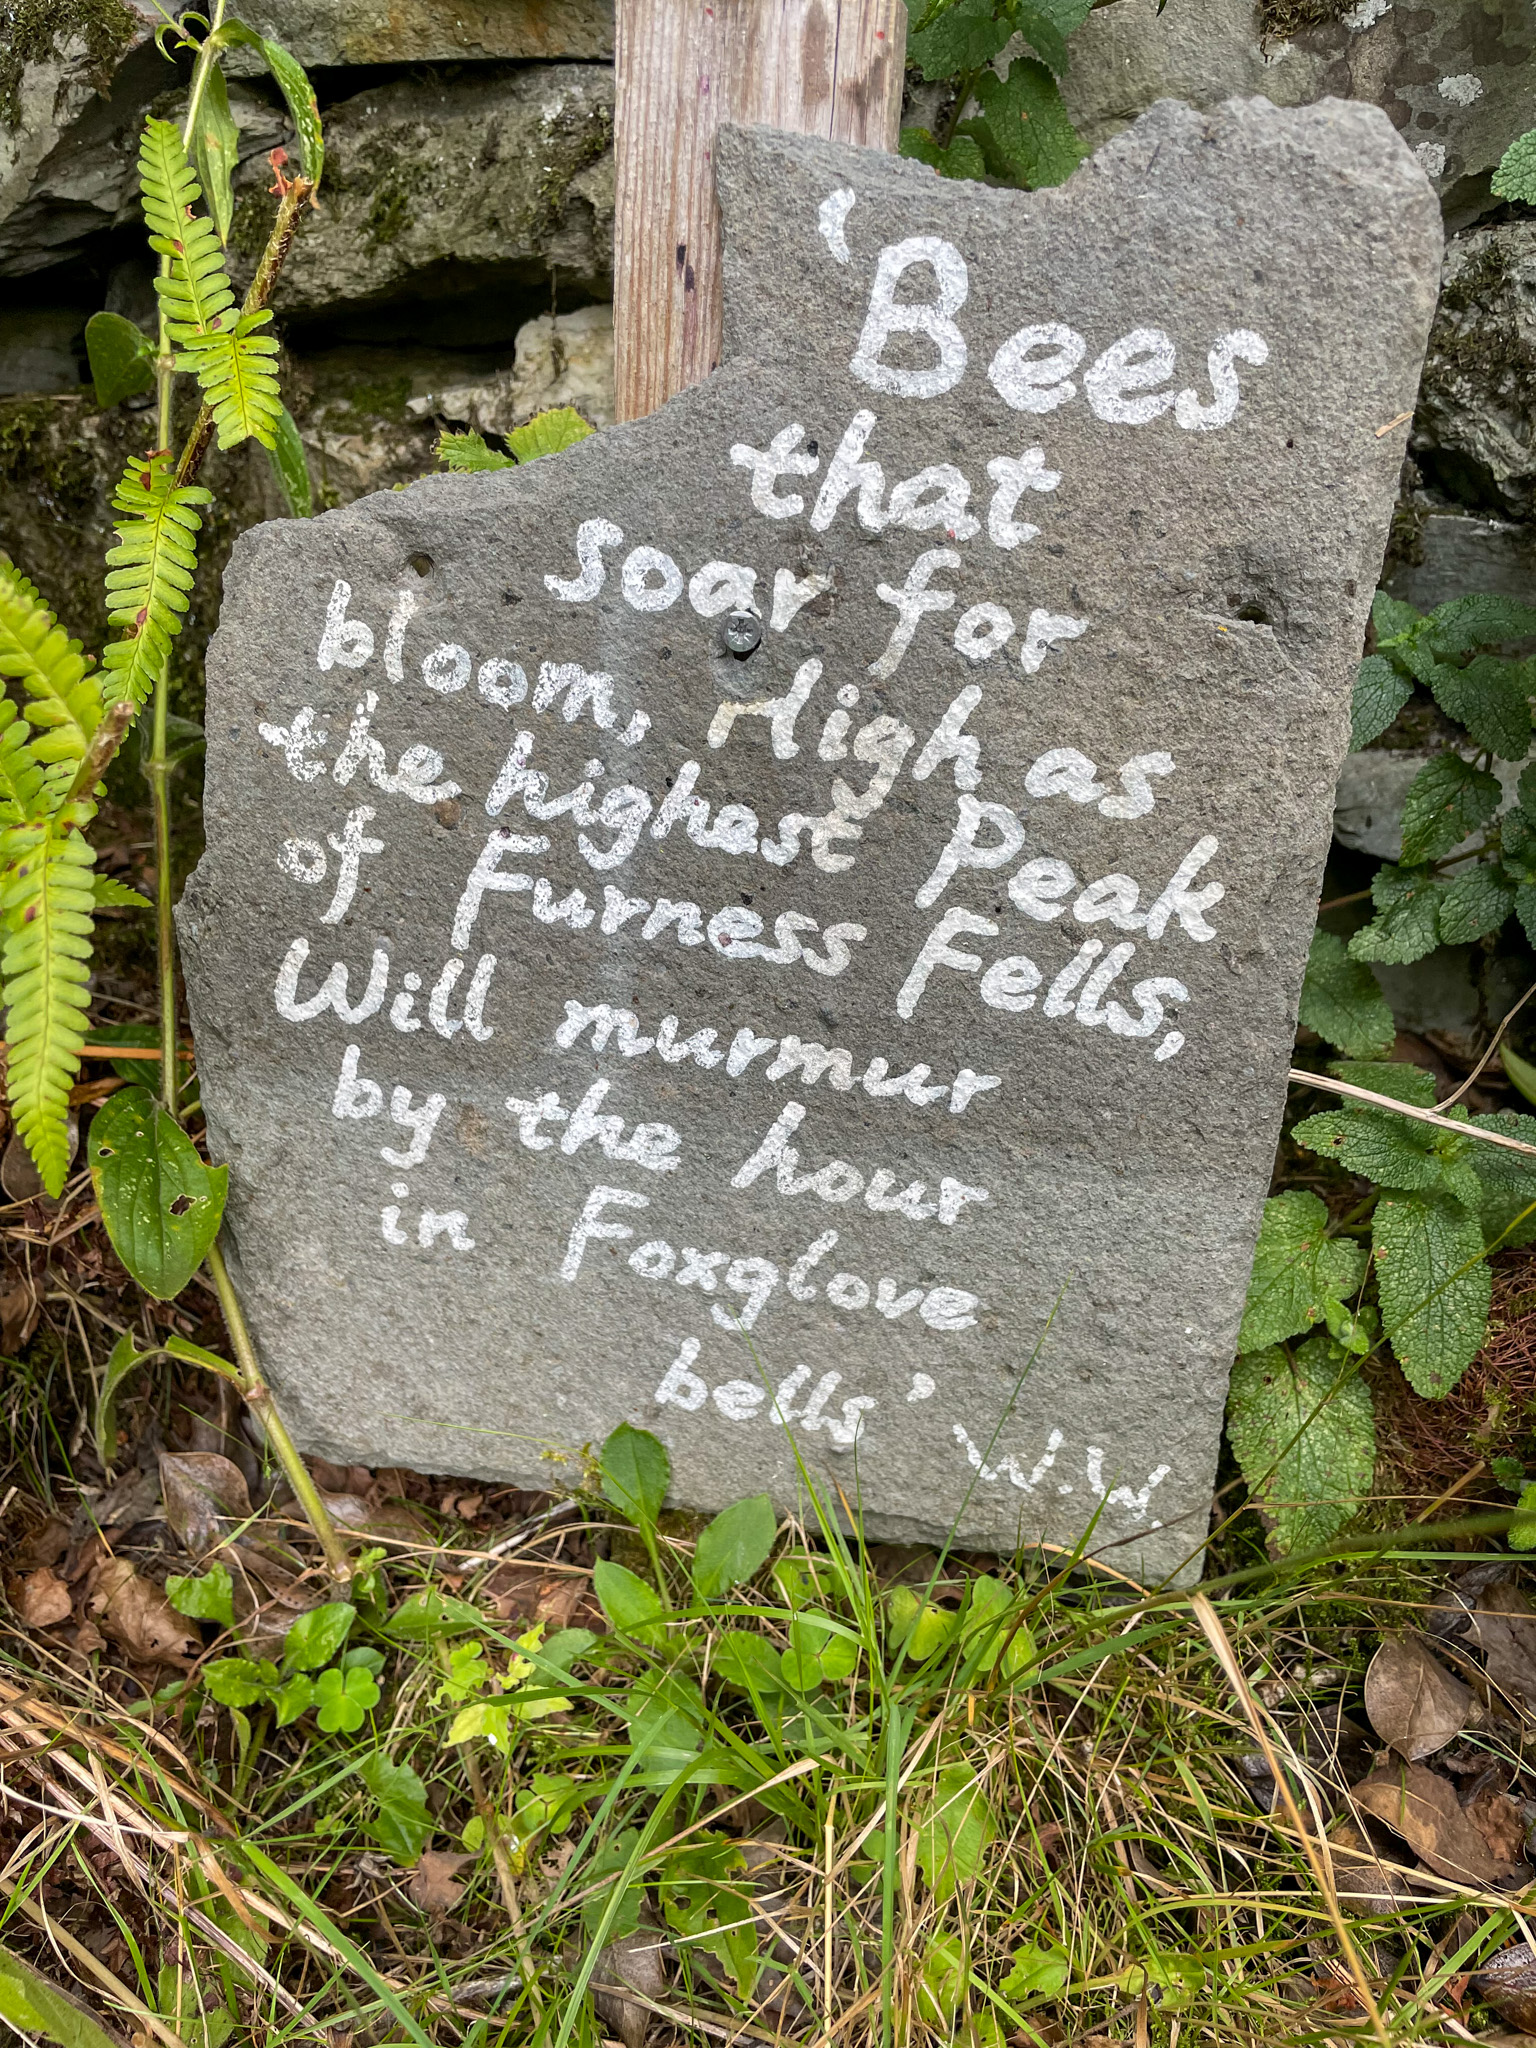 'Bees
that
soar for
bloom, High as
the highest Peak
of Furness Fells,
Will murmur
by the hour
in Foxglove
bells' W.W.